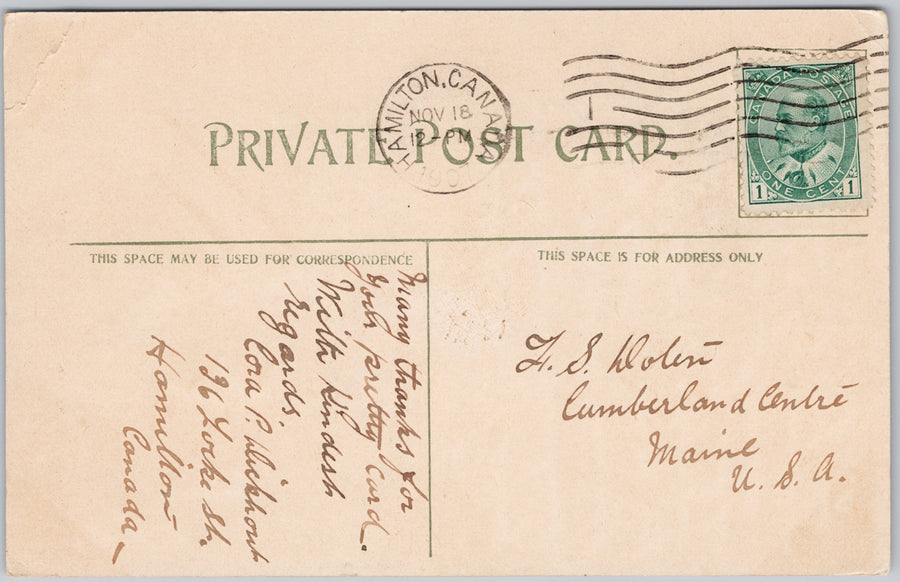 HAMILTON, CANADA
NOV 18
12-PM
1907
CANADA POSTAGE
1 ONE CENT 1
PRIVATE POST CARD.
THIS SPACE MAY BE USED FOR CORRESPONDENCE
THIS SPACE IS FOR ADDRESS ONLY
Many thanks for
your pretty card.
With kindest
regards
Cora P.
136 Locke St.
Hamilton
Canada
F. S. Doten
Cumberland Centre
Maine
U. S. A.